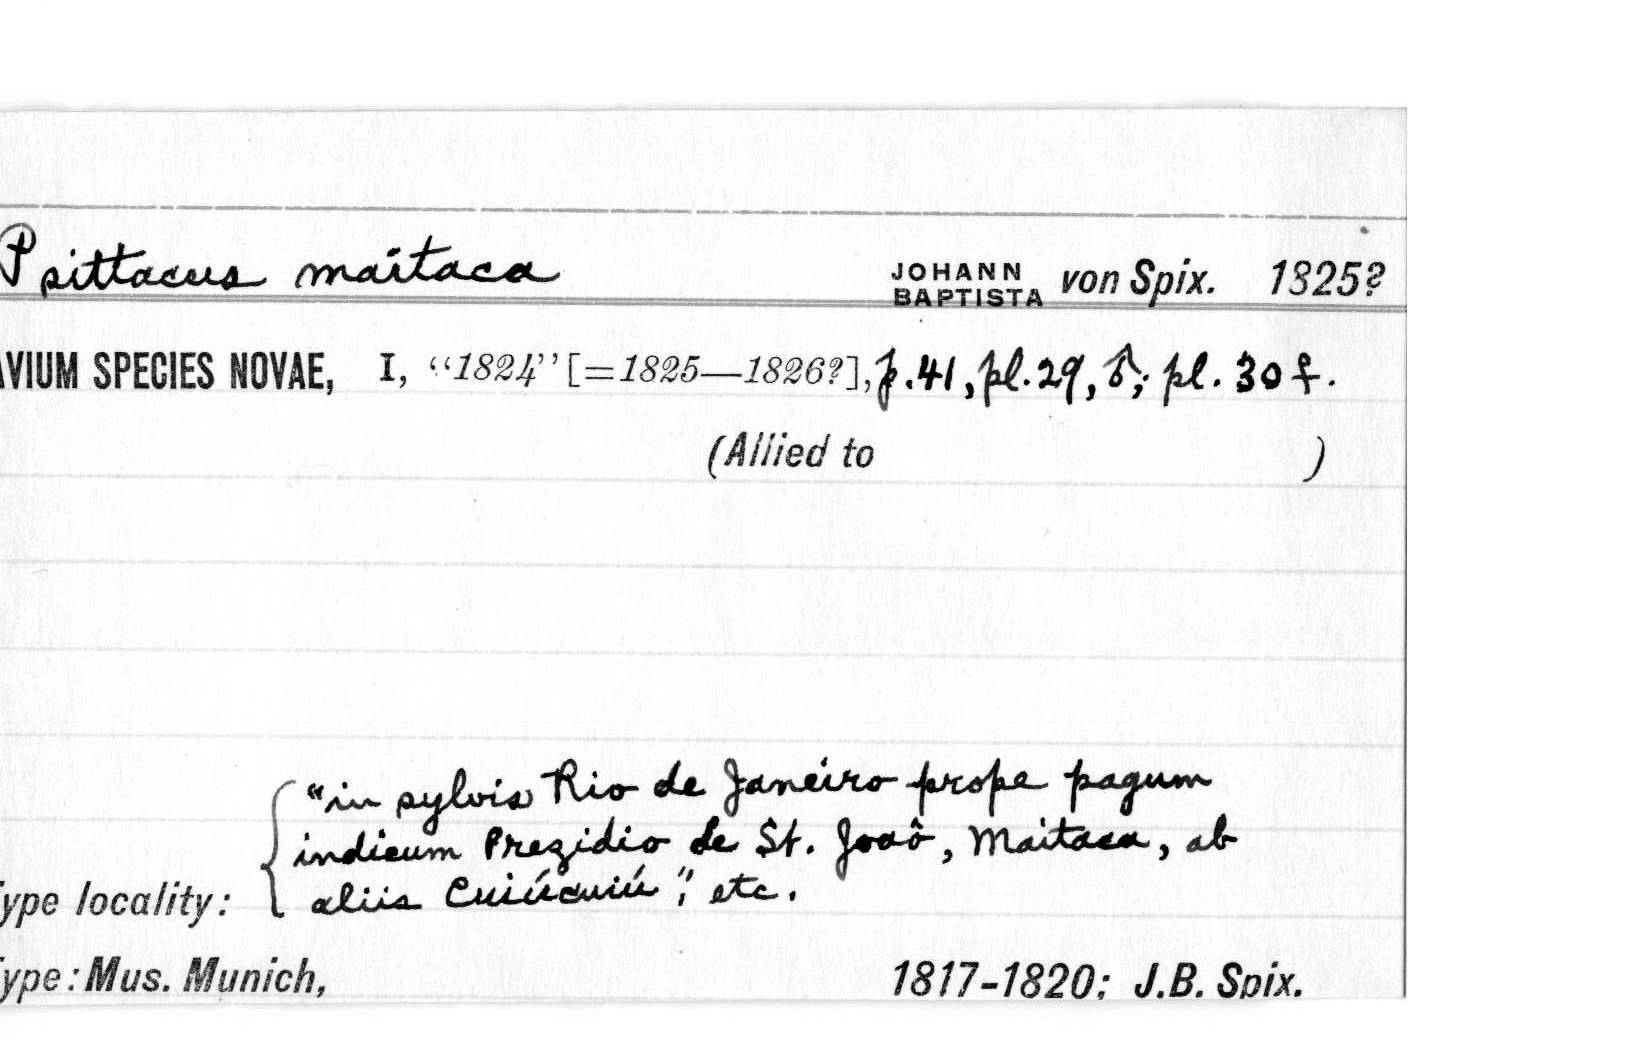 Psittacus maitaca JOHANN BAPTISTA von Spix. 1825?
AVIUM SPECIES NOVAE, I, “1824” [=1825—1826?], p.41, pl.29, ♂; pl. 30 ♀.
(Allied to )
"in sylvis Rio de Janeiro prope pagum
indicum Prezidio de St. Joaô, Maitaca, ab
ype locality: aliis Cuiúcuiú", etc.
ype: Mus. Munich, 1817-1820; J.B. Spix.